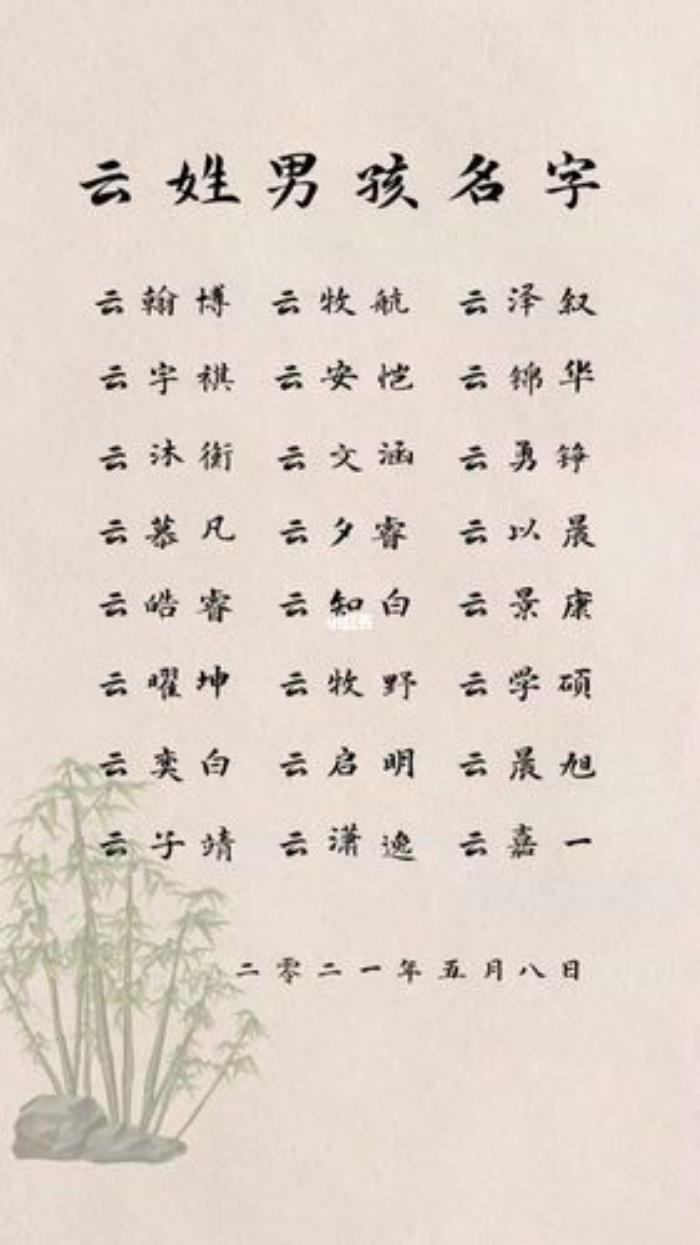 云姓男孩名字
云翰博 云牧航 云泽叙
云宇祺 云安恺 云锦华
云沐衡 云文涵 云勇铮
云慕凡 云夕睿 云以晨
云皓睿 云知白 云景康
小红书
云曜坤 云牧野 云学硕
云奕白 云启明 云晨旭
云子靖 云潇逸 云嘉一
二零二一年五月八日